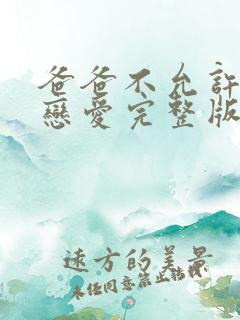 爸爸不允許
戀愛完整版
遠方的美景
未任同意禁止轉載